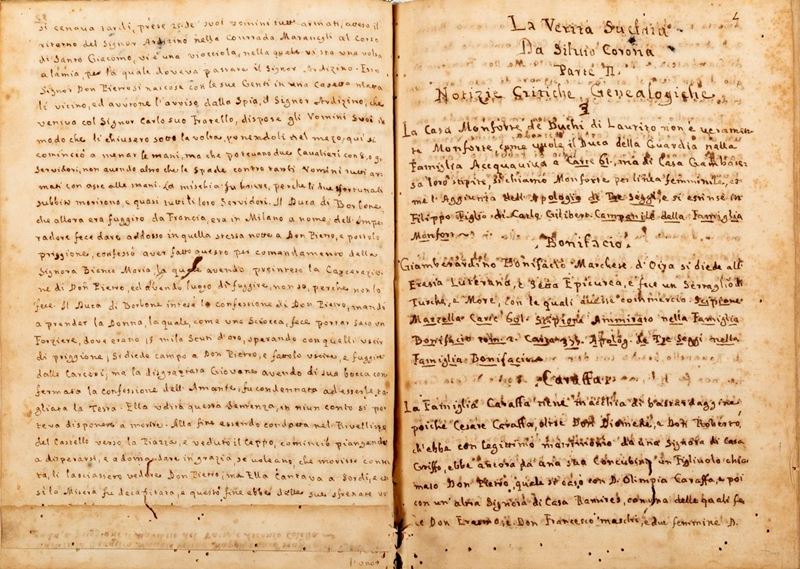 si cenava tardi, prese 25 de suoi Uomini tutti armati, atteso il
ritorno del Signor Ardizino nella Contrada Maravegli al Corso
di Santo Giacomo, vi è una viocciola, nella quale vi sta una volta
alamia, per la quale doveva passare il Signor Ardizino. Esso
Signor Don Pietro si nascose con le sue Genti in una Casetta
li vicino, ed avutone l'avviso dalla Spia, il Signor Ardizino, che
veniva col Signor Carlo suo Fratello, dispose gli Uomini Suoi in
modo che li chiusero sotto la volta, ponendoli nel mezo, qui si
cominciò a menar le mani, ma che potevano due Cavalieri con 8, o 9
Servidori, non avendo altro che le spade contro tanti Uomini tutti ar
mati con aste alle mani. La mischia fu breve, perche li due sfortunati
subbito morirono, e quasi tutti li loro Servidori. Il Duca di Borbone,
che allora era fuggito da Francia, era in Milano a nome dell'Impe
radore fece dare addosso in quella stessa notte a Don Pietro, e postolo
priggione, confessò aver fatto questo per comandamento della
Signora Bianca Maria, la quale avendo preinteso la Carcerazio
ne di Don Pietro, ed avendo luogo di fuggire, non so, perche non lo
fece. Il Duca di Borbone intesa la confessione di Don Pietro, mandò
a prender la Donna, la quale, come una Sciocca, fece portar seco un
Forziere, dove erano 15 mila Scuti d'oro, sperando con quelli uscir
di priggione, Si diede campo a Don Pietro, e fattolo uscire, e fuggir
dalle Carceri, ma la disgraziata Giovane avendo di sua bocca con
fermata la Confessione dell'Amante, fu condennata ad esserle ta
gliata la Testa. Ella udita questa Sentenza, in niun conto si po
teva disponere a morire. Alla fine essendo condotta nel Rivellino
del Castello verso la Piazza, e veduto il Ceppo, cominciò piangendo
a disperarsi, e a domandare in grazia se voleano, che morisse conten
ta, li lasciassero vedere Don Pietro, ma Ella Cantava a Sordi, e co
si la Misera fu decapitata, e questo fine ebbe delle sue sfrenate vo
4
La Verità Svelata
Da Silvio Corona
Parte II.
Notizie Critiche, Genealogiche
La Casa Monforte de Duchi di Laurito non è veramen
te Monforte, come vuole il Duca della Guardia nella
Famiglia Acquaviva a Carte 61, ma di Casa Gambatesa
sa loro stipite, si chiamò Monforte per linea femminile, co
me l'Aggiunta dell'Apologia di Tre Seggi, e si estinse in
Filippo Figlio di Carlo Giliberto Campanile della Famiglia
Monforte
Bonifacio
Giamberardino Bonifacio Marchese d'Oira si diede all'
Eresia Luterana, e Setta Epicurea, e fece un Serraglio di
Turche, e More, con le quali ebbe commercio Scipione
Mazzella Carte 601. Scipione Ammirato nella Famiglia
Bonifacio tom. 2. Apolog. de Tre Seggi nella
Famiglia Bonifacio
Caraffa
La Famiglia Caraffa tiene macchia di bastardaggine
poiche Cesare Caraffa, oltre Don Diomede, e Don Roberto,
ch'ebbe con legittimo matrimonio da una Signora di Casa
Griffo, ebbe ancora da una sua Concubina un Figliuolo chia
mato Don Pietro, quale si casò con D. Olimpia Caraffa, e poi
con un'altra Signora di Casa Ramires, con una delle quali fe
ce Don Erasmo, e Don Francesco maschi, e due femmine D.